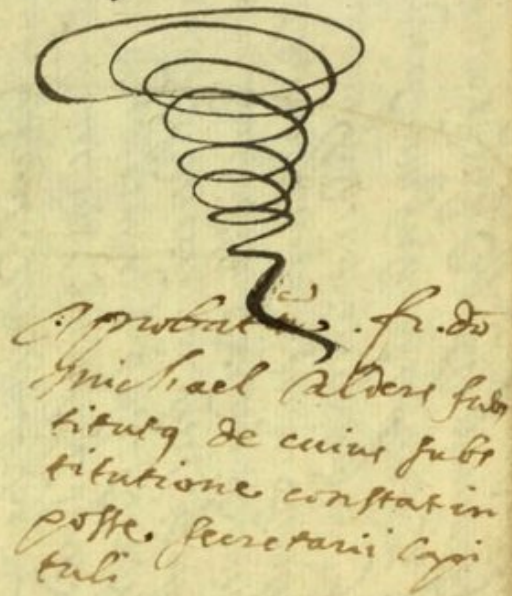 Aprobat . fr. do
Michael Aldere subs
titutq de cuius subs
titutione constat in
posse. secretarii Capi
tuli